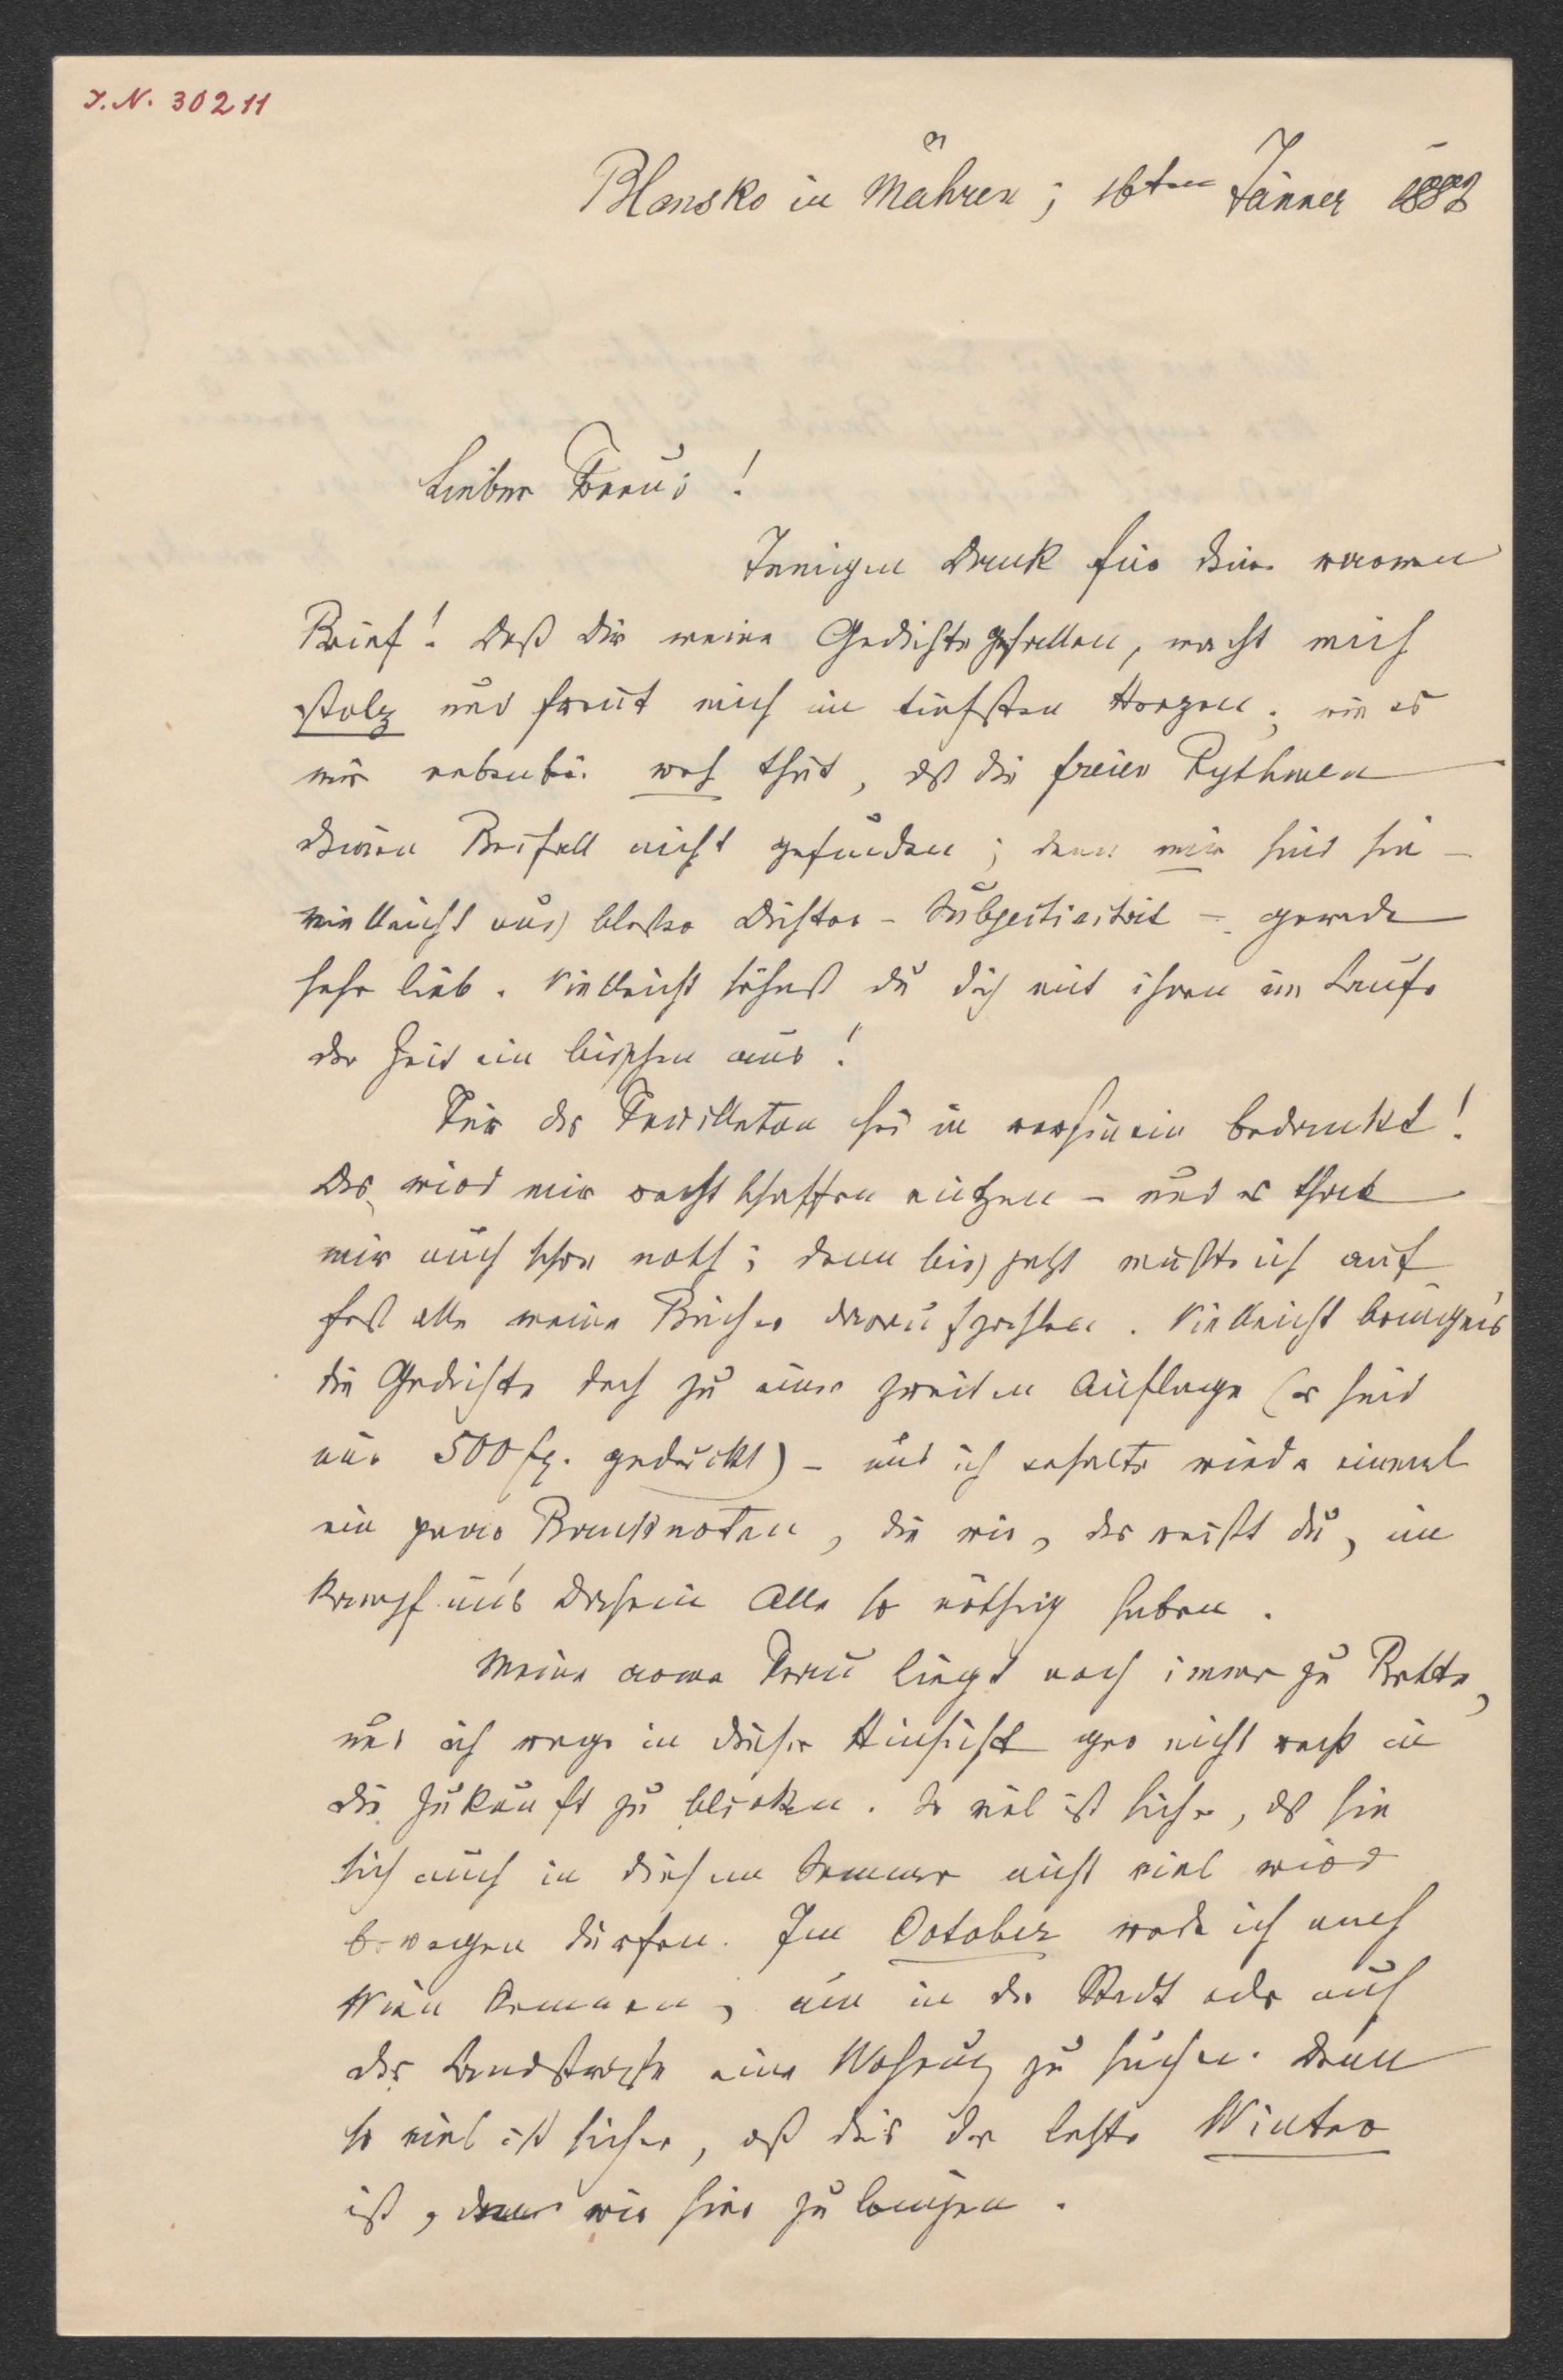 I. N. 30211
Blansko in Mähren; 16ten Jänner 1882
Lieber Freund!
Innigen Dank für Deinen warmen
Brief! Daß Dir meine Gedichte gefallen, macht mich
stolz und freut mich im tiefsten Herzen; wie es
mir nebenbei weh thut, daß die freien Rythmen
Deinen Beifall nicht gefunden; denn mir sind sie –
vielleicht aus bloßer Dichter-Subjectivität – gerade
sehr lieb. Vielleicht söhnst du dich mit ihnen im Laufe
der Zeit ein bischen aus!
Für das Feuilleton sei im vorhinein bedankt!
Das wird mir rechtschaffen nützen – und es thut
mir auch schon noth; denn bis jetzt mußte ich auf
fast alle meine Bücher daraufzahlen. Vielleicht bringen's
die Gedichte doch zu einer zweiten Auflage (es sind
nur 500 Ex. gedruckt) – und ich erhalte wieder einmal
ein paar Banknoten, die wir, das weißt du, im
Kampf um's Dasein Alle so nöthig haben.
Meine arme Frau liegt noch immer zu Bette,
und ich wage in dieser Hinsicht gar nicht recht in
die Zukunft zu blicken. So viel ist sicher, daß sie
sich auch in diesem Sommer nicht viel wird
bewegen dürfen. Im October werde ich nach
Wien kommen, um in der Stadt oder auf
der Landstraße eine Wohnung zu suchen. Denn
so viel ist sicher, daß dies der letzte Winter
ist, den wir hier zubringen.